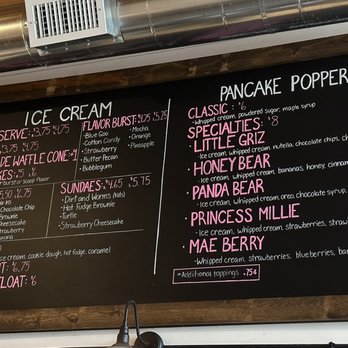 ICE CREAM
SERVE: $3.75 $4.75
DE WAFFLE CONE: $1
KES: $5 $6
BURST or Scoop Flavor
5.50 $6.75
Chip
Chocolate Chip
Brownie
Cheesecake
Strawberry
Banana
ice cream, cookie dough, hot fudge, caramel
T: 6.75
FLOAT: $6
FLAVOR BURST: $4.25 $5.25
• Blue Goo
• Cotton Candy
• Strawberry
• Butter Pecan
• Bubblegum
• Mocha
• Orange
• Pineapple
SUNDAES: $4.65 $5.75
• Dirt and Worms (kids)
• Hot Fudge Brownie
• Turtle
• Strawberry Cheesecake
PANCAKE POPPER
CLASSIC : $6
• Whipped cream, powdered sugar, maple syrup
SPECIALTIES: $8
LITTLE GRIZ
• Ice cream, whipped cream, nutella, chocolate chips, ch
HONEY BEAR
• Ice cream, whipped cream, bananas, honey, cinnam
PANDA BEAR
• Ice cream, whipped cream, oreo, chocolate syrup,
PRINCESS MILLIE
• Ice cream, whipped cream, strawberries, straw
MAE BERRY
• Whipped cream, strawberries, blueberries, ban
*Additional toppings .75¢